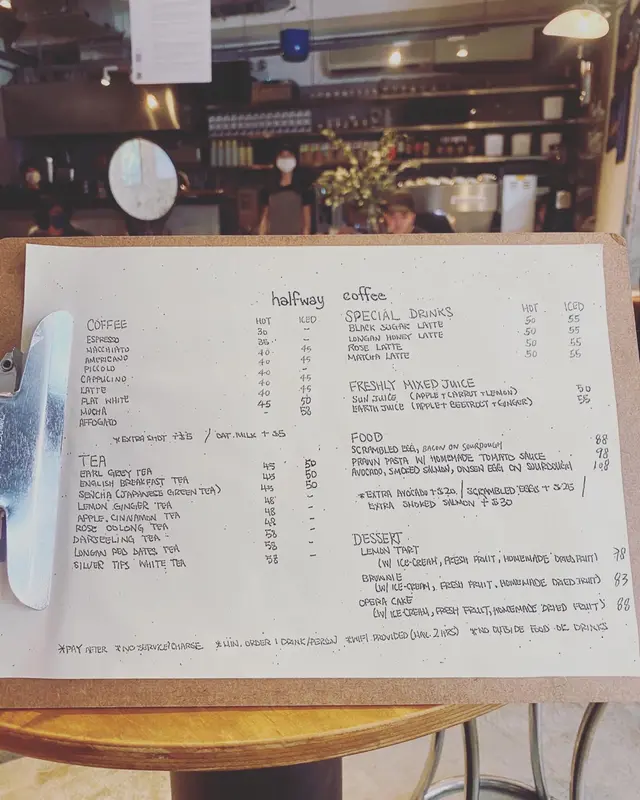 halfway coffee
COFFEE HOT ICED
ESPRESSO 30 -
MACCHIATO 35 -
AMERICANO 40 45
PICCOLO 40 -
CAPPUCINO 40 45
LATTE 40 45
FLAT WHITE 40
MOCHA 45 50
AFFOGATO 58
*EXTRA SHOT +$5 / OAT MILK +$5
TEA
EARL GREY TEA 45 50
ENGLISH BREAKFAST TEA 45 50
SENCHA (JAPANESE GREEN TEA) 45 50
LEMON GINGER TEA 48 -
APPLE CINNAMON TEA 48 -
ROSE OOLONG TEA 48 -
DARJEELING TEA 58 -
LONGAN RED DATES TEA 58 -
SILVER TIPS WHITE TEA 58 -
SPECIAL DRINKS HOT ICED
BLACK SUGAR LATTE 50 55
LONGAN HONEY LATTE 50 55
ROSE LATTE 50 55
MATCHA LATTE 50 55
FRESHLY MIXED JUICE
SUN JUICE (APPLE+CARROT+LEMON) 50
EARTH JUICE (APPLE+BEETROOT+GINGER) 55
FOOD
SCRAMBLED EGG, BACON ON SOURDOUGH 88
PRAWN PASTA W/ HOMEMADE TOMATO SAUCE 98
AVOCADO, SMOKED SALMON, ONSEN EGG ON SOURDOUGH 108
*EXTRA AVOCADO +$20 / SCRAMBLED EGGS +$25 /
EXTRA SMOKED SALMON +$30
DESSERT
LEMON TART
(W/ ICE-CREAM, FRESH FRUIT, HOMEMADE DRIED FRUIT) 78
BROWNIE
(W/ ICE-CREAM, FRESH FRUIT, HOMEMADE DRIED FRUIT) 83
OPERA CAKE
(W/ ICE-CREAM, FRESH FRUIT, HOMEMADE DRIED FRUIT) 88
*PAY AFTER *NO SERVICE CHARGE *MIN. ORDER 1 DRINK/PERSON *WIFI PROVIDED (MAX 2 HRS) *NO OUTSIDE FOOD OR DRINKS